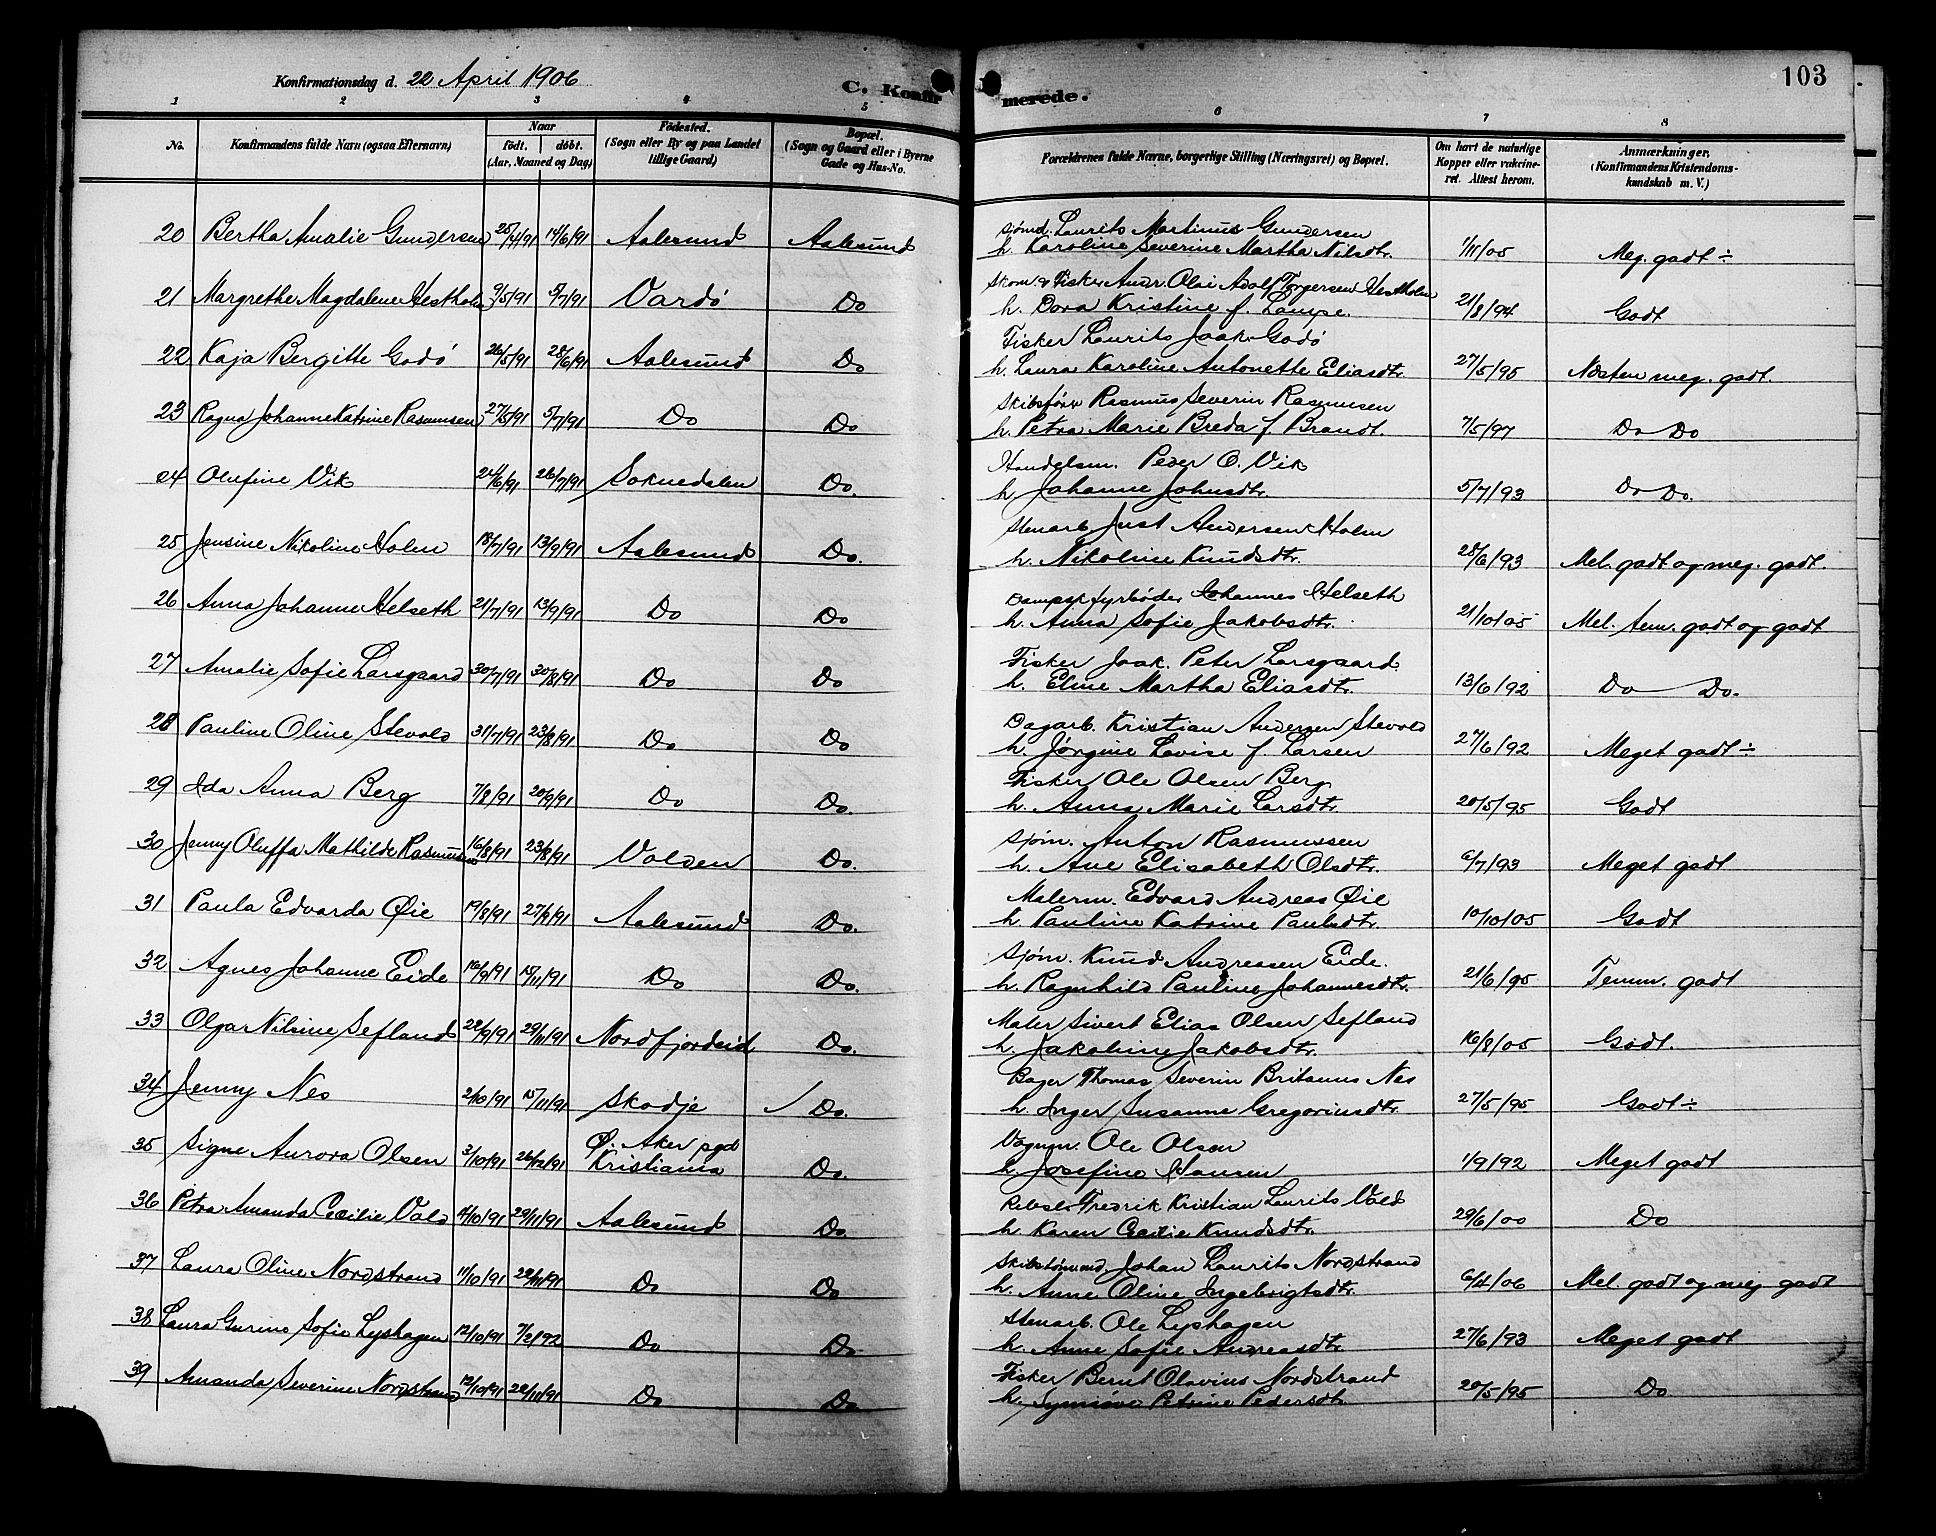 Konfirmationsdag d. 22 April 1906
C. Konfir merede. 103
1 2 3 4 5 6 7 8
No. Konfirmandens fulde Navn (ogsaa Efternavn) Naar födt. döbt. (Aar, Maaned og Dag) Födested. (Sogn eller By og paa Landet tillige Gaard) Bopæl. (Sogn og Gaard eller i Byerne Gade og Hus-No. Forældrenes fulde Navne, borgerlige Stilling (Næringsvei) og Bopæl. Om havt de naturlige Kopper eller vakcineret. Attest herom. Anmærkninger. (Konfirmandens Kristendomskundskab m. V.)
20 Bertha Amalie Gundersen 25/4/91 14/6/91 Aalesund Aalesund Sjømd. Laurits Martinus Gundersen
h. Karoline Severine Martha Nilsdtr. 1/11/05 Meg. godt ÷
21 Margrethe Magdalene Hestholm 9/5/91 5/7/91 Vardö Do Skom. & Fisker Andr. Olai Adolf Torgersen Hestholm
h. Dora Kristine f. Lampe. 21/8/94 Godt
22 Kaja Bergitte Godö 26/5/91 28/6/91 Aalesund Do Fisker Laurits Jaak. Godö
h. Laura Karoline Antonette Eliasdtr. 27/5/95 Næsten meg. godt.
23 Ragna Johanne Katrine Rasmusen 27/5/91 5/7/91 Do Do Skibsförer Rasmus Severin Rasmusen
h. Petra Marie Breda f Brandt. 7/5/97 Do Do
24 Olufine Vik 24/6/91 26/7/91 Soknedalen Do. Handelsm. Peder O. Vik
h. Johanne Johnsdtr. 5/7/93 Do Do.
25 Jensine Nikoline Holm 18/7/91 13/9/91 Aalesund Do. Stenarb Just Andersen Holm
h. Nikoline Knudsdtr. 28/6/93 Mel. godt og meg. godt.
26 Anna Johanne Helseth 21/7/91 13/9/91 Do Do Dampsk. fyrböder Johannes Helseth
h. Anna Sofie Jakobsdtr. 21/10/05 Mel. tem. godt og godt
27 Amalie Sofie Larsgaard 30/7/91 30/8/91 Do Do Fisker Jaak. Peter Larsgaard
h. Eline Martha Eliasdtr. 13/6/92 Do Do.
28 Pauline Oline Stevold 31/7/91 23/8/91 Do Do Dagarb. Kristian Andersen Stevold
h. Jörgine Lovise f. Larsen 27/6/92 Meget godt ÷
29 Ida Anna Berg 7/8/91 20/9/91 Do Do. Fisker Ole Olsen Berg
h. Anna Marie Larsdtr. 20/5/95 Godt
30 Jenny Oluffa Mathilde Rasmusen 16/8/91 23/8/91 Volden Do. Sjöm. Anton Rasmussen
h. Ane Elisabeth Olsdtr. 6/7/93 Meget godt
31 Paula Edvarda Øie 19/8/91 27/9/91 Aalesund Do. Malerm. Edvard Andreas Øie
h. Pauline Katrine Paulsdtr. 10/10/05 Godt
32 Agnes Johanne Eide 16/9/91 15/11/91 Do Do. Sjöm. Knud Andreasen Eide.
h. Ragnhild Pauline Johannesdtr. 21/6/95 Temm. godt
33 Olga Nilsine Sefland 22/9/91 29/11/91 Nordfjordeid Do. Maler Sivert Elias Olsen Sefland
h. Jakobine Jakobsdtr. 16/8/05 Godt.
34 Jenny Nes 2/10/91 15/11/91 Skodje / Do. Bager Thomas Severin Britanus Nes
h. Inger Susanne Gregoriusdtr. 27/5/95 Godt ÷
35 Signe Aurora Olsen 3/10/91 26/12/91 Ø. Aker pgd Kristiania Do. Vognm. Ole Olsen
h. Josefine Hansen 1/9/92 Meget godt
36 Petra Amanda Cecilie Vold 4/10/91 29/11/91 Aalesund Do Rebsl. Fredrik Kristian Laurits Vold
h. Karen Cecilie Knudsdtr. 29/6/00 Do
37 Laura Oline Nordstrand 11/10/91 22/11/91 Do Do Skibstömmd. Johan Laurits Nordstrand
h. Anne Oline Ingebrigtsdtr. 6/4/06 Mel. godt og meg godt
38 Laura Gurine Sofie Lyshagen 12/10/91 7/2/92 Do Do Stenarb. Ole Lyshagen
h. Anne Sofie Andreasdtr. 27/6/93 Meget godt
39 Amanda Severine Nordstrand 12/10/91 22/11/91 Do Do Fisker Bernt Olavius Nordstrand
h. Synnöve Petrine Pedersdtr. 20/5/95 Do